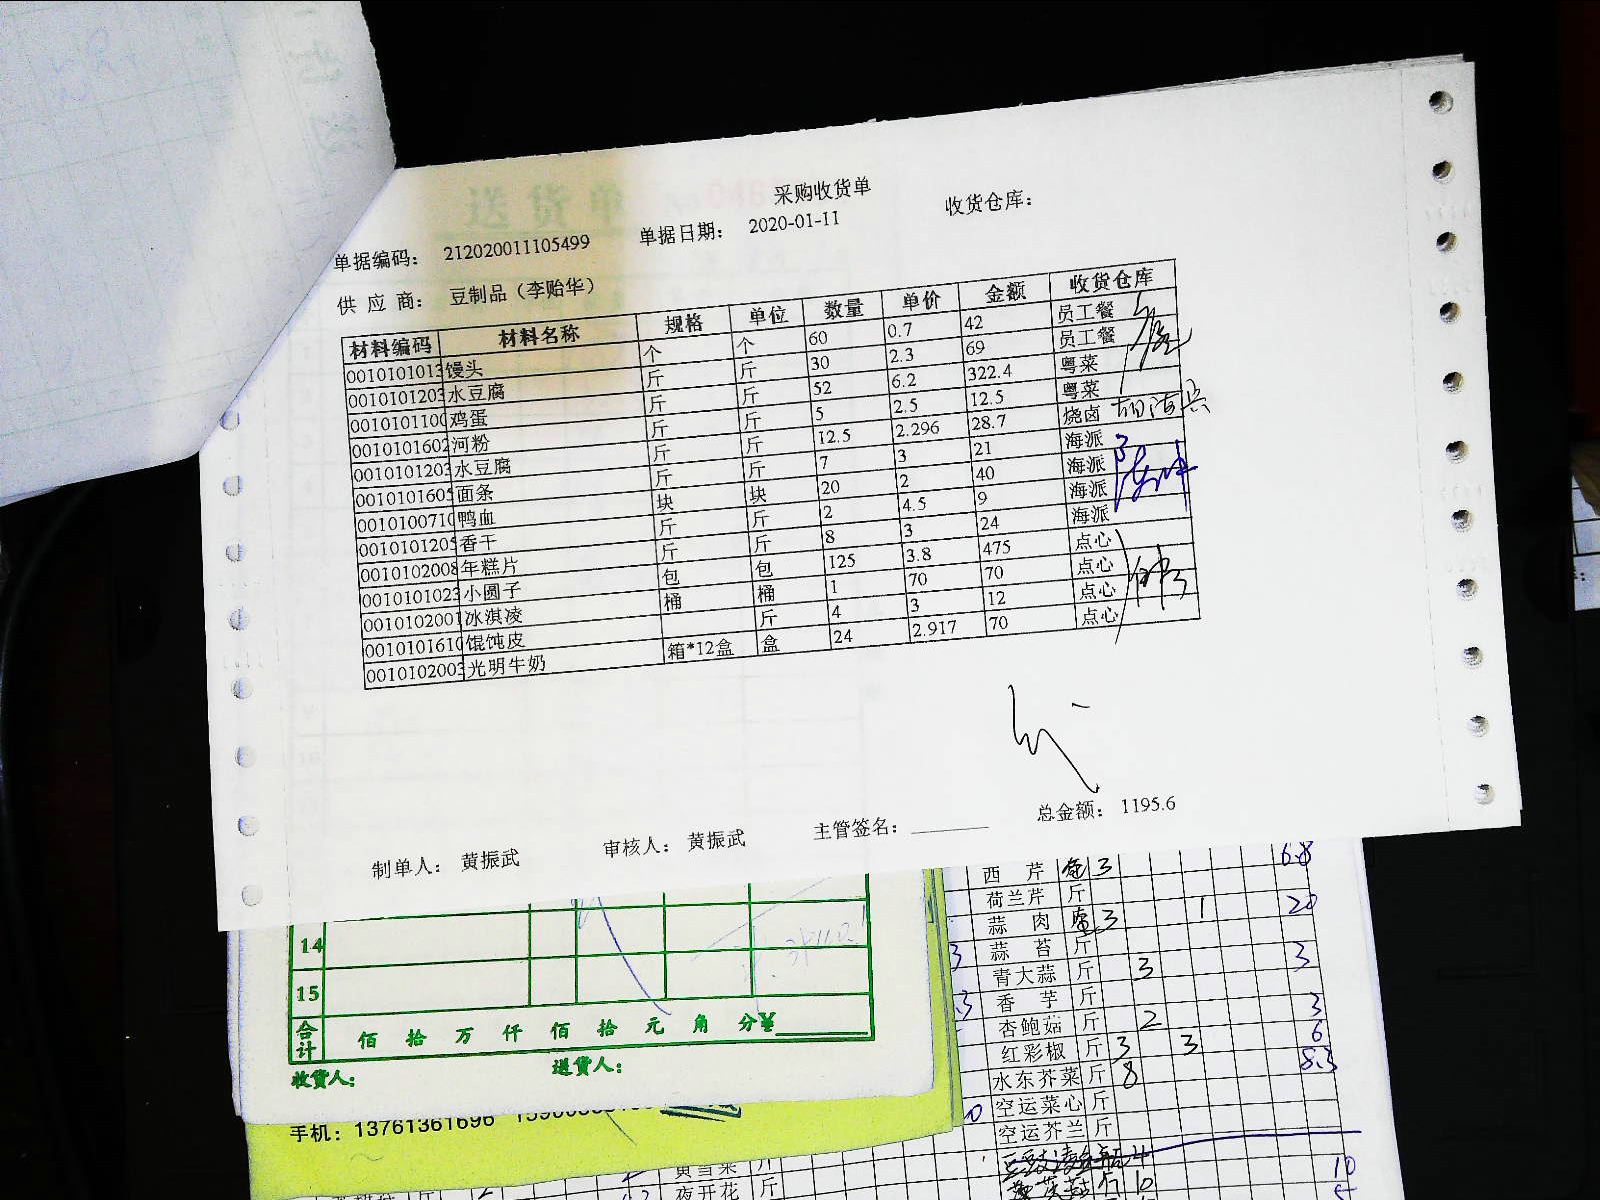 送货单
采购收货单
单据编码： 212020011105499 单据日期： 2020-01-11 收货仓库：
供 应 商： 豆制品（李贻华）
材料编码 材料名称 规格 单位 数量 单价 金额 收货仓库
0010101013 馒头 个 个 60 0.7 42 员工餐
0010101203 水豆腐 斤 斤 30 2.3 69 员工餐
0010101100 鸡蛋 斤 斤 52 6.2 322.4 粤菜
0010101602 河粉 斤 斤 5 2.5 12.5 粤菜
0010101203 水豆腐 斤 斤 12.5 2.296 28.7 烧卤
0010101605 面条 斤 斤 7 3 21 海派
0010100710 鸭血 块 块 20 2 40 海派
0010101205 香干 斤 斤 2 4.5 9 海派
0010102008 年糕片 斤 斤 8 3 24 海派
0010101023 小圆子 包 包 125 3.8 475 点心
0010102001 冰淇凌 桶 桶 1 70 70 点心
0010101610 馄饨皮 斤 4 3 12 点心
0010102003 光明牛奶 箱*12盒 盒 24 2.917 70 点心
总金额： 1195.6
制单人： 黄振武 审核人： 黄振武 主管签名：
14
15
合计 佰 拾 万 仟 佰 拾 元 角 分¥
收货人： 送货人：
手机：13761361696
西 芹 3 6.8
荷兰芹 斤
蒜 肉 3 1 20
蒜 苔 斤
青大蒜 斤 3 3
香 芋 斤
杏鲍菇 斤 2 3
红彩椒 斤 3 3 6
水东芥菜 斤 8 8.3
空运菜心 斤
空运芥兰 斤
10
夜开花 斤